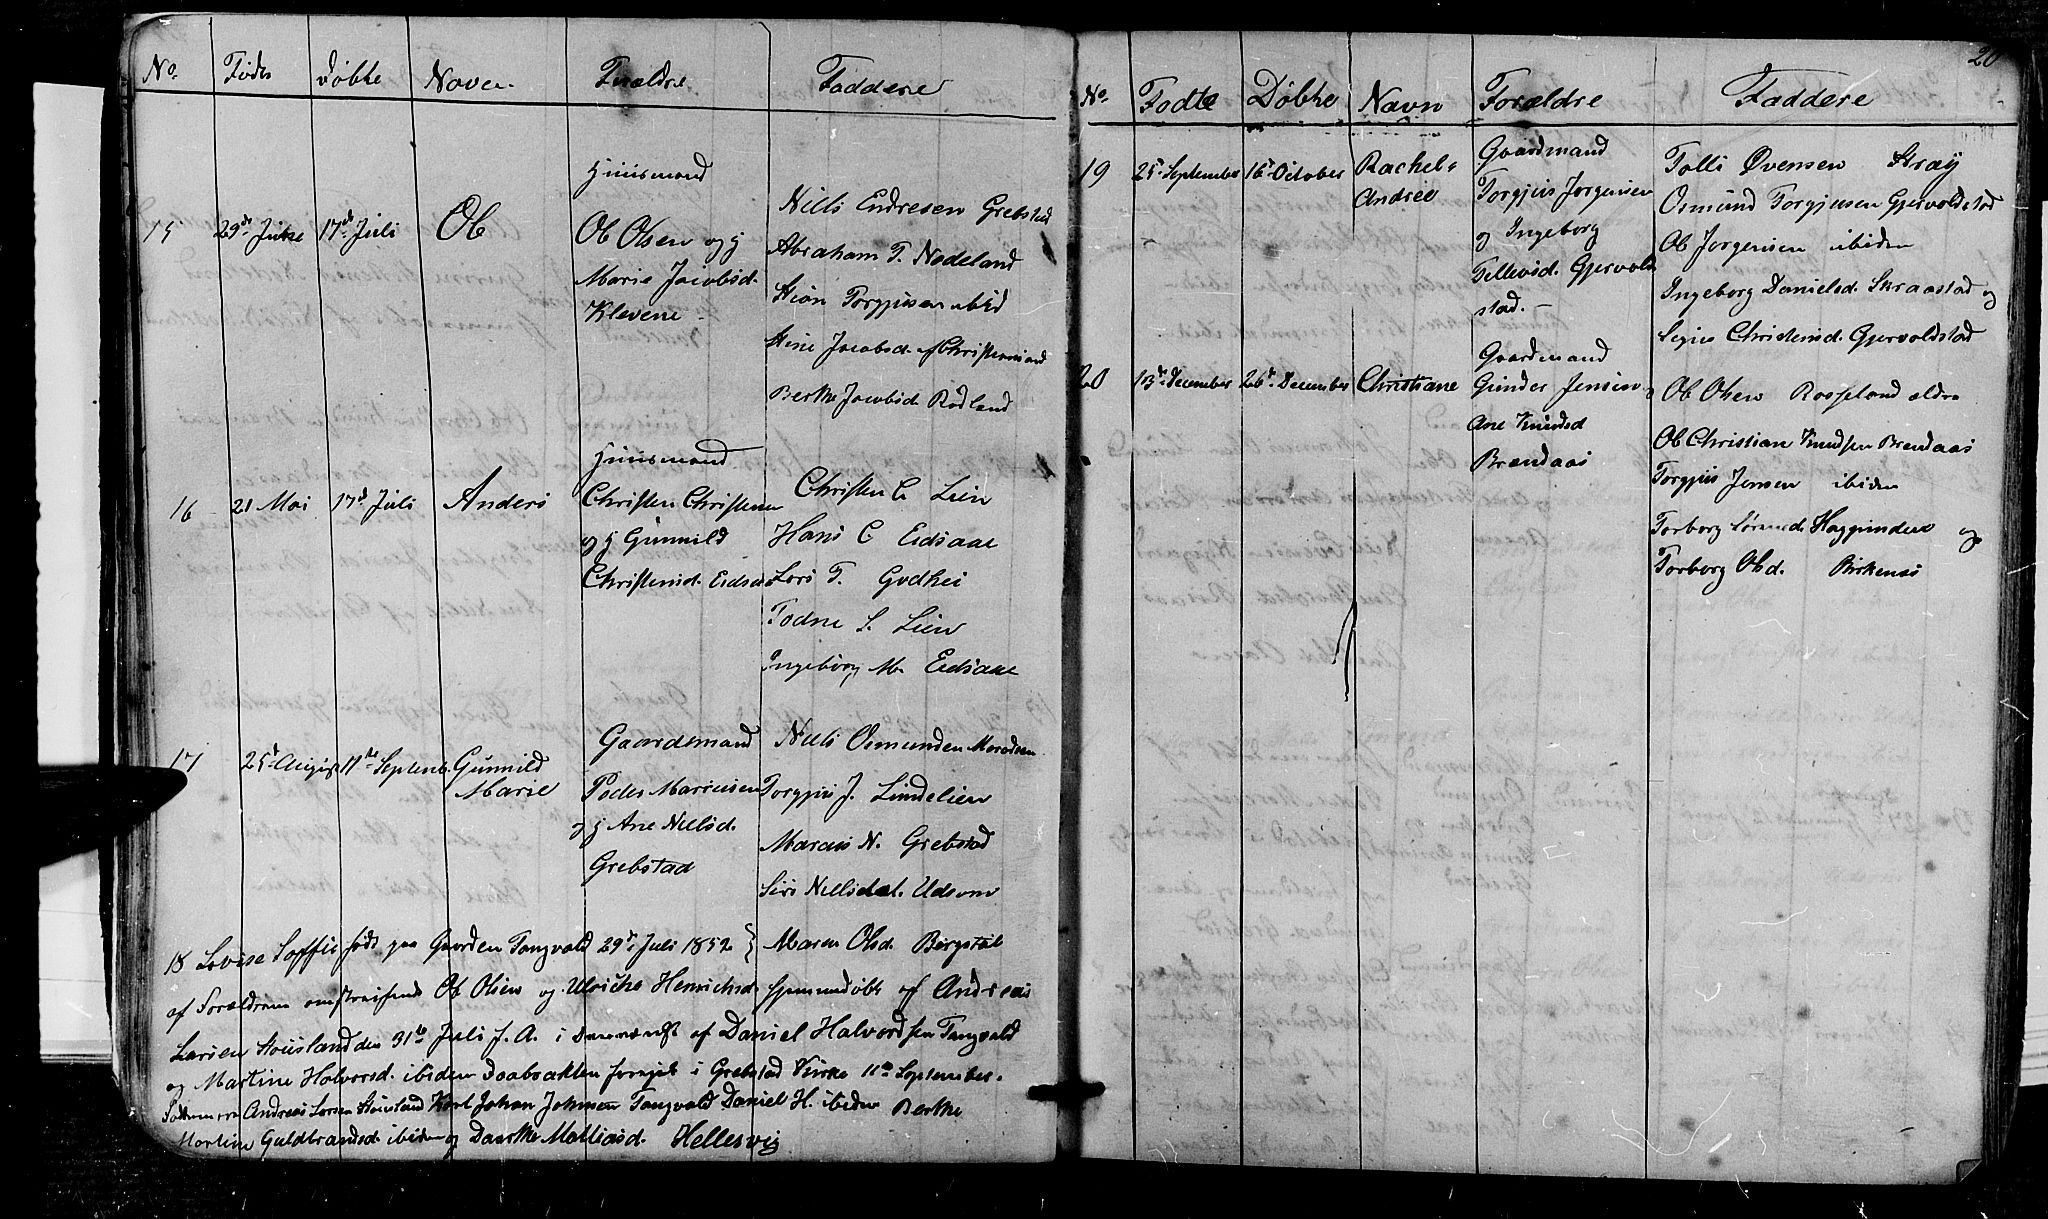 No. Føds døbte Navn Forældre Faddere
15 29de June 17de Juli Ole
Huusmand
Ole Olsen og H
Marie Jacobsd.
Klevene
Niels Endresen Grebstad
Abraham T. Nodeland
Steon Torgjusen ibid
Stine Jacobsd. af Christiansand
Berthe Jacobsd. Rodland
16 21 Mai 17de Juli Anders
Huusmand
Christen Christensen
og H Gunnild
Christensd. Eidsaae
Christen C. Lien
Hans C Eidsaae
Lars T. Godhei
Todne S. Lien
Ingeborg M. Eidsaae
17 25de August 11te Septemb. Gunnild
Marie
Gaardsmand
Peder Marcusen
og H Ane Nielsd.
Grebstad
Niels Osmundsen
Torgjus J. Lindelien
Marcus N. Grebstad
Siri Nielsdat. Udsom
18 Lovise Soffie føds paa Gaarden Tangvald 29de Juli 1852 } Maren Olsd. Bergstøl
af Forældrene omstreifende Ole Olsen og Ulriche Henrichsd. hjemmedøbt af Andreas
Larsen Stousland den 31te Juli f. A. i Daniel Halvordsen Tangvald
og Martine Halvorsd. ibiden Daabsakten fornyet i Grebstad Kirke 11te September.
Andreas Larsen Stousland Karl Johan Johnsen Tangvald Daniel H. ibiden Berthe
Martine Guldbrandsd. ibiden og Dorthe Mathiasd. Hellesvig
20
No. Fødte Døbte Navn Forældre Faddere
19 25de September 16de October Rachel
Andree
Gaardmand
Torgjus Jorgensen
og Ingeborg
Tellevsd. Gjervold
stad.
Tolli Øvensen Stray
Osmund Torgjusen Gjervoldstad
Ole Jorgensen ibiden
Ingeborg Danielsd. Skraastad og
Signe Christensd. Gjervoldstad
20 13de December 26de December Christiane
Gaardmand
Gunder Jensen
Ane Knudsd
Brændaas
Ole Olsen Rosseland ældre
Ole Christian Knudsen Brændaas
Torgjus Jensen ibiden
Torborg og
Torborg Olsd. Birkenes